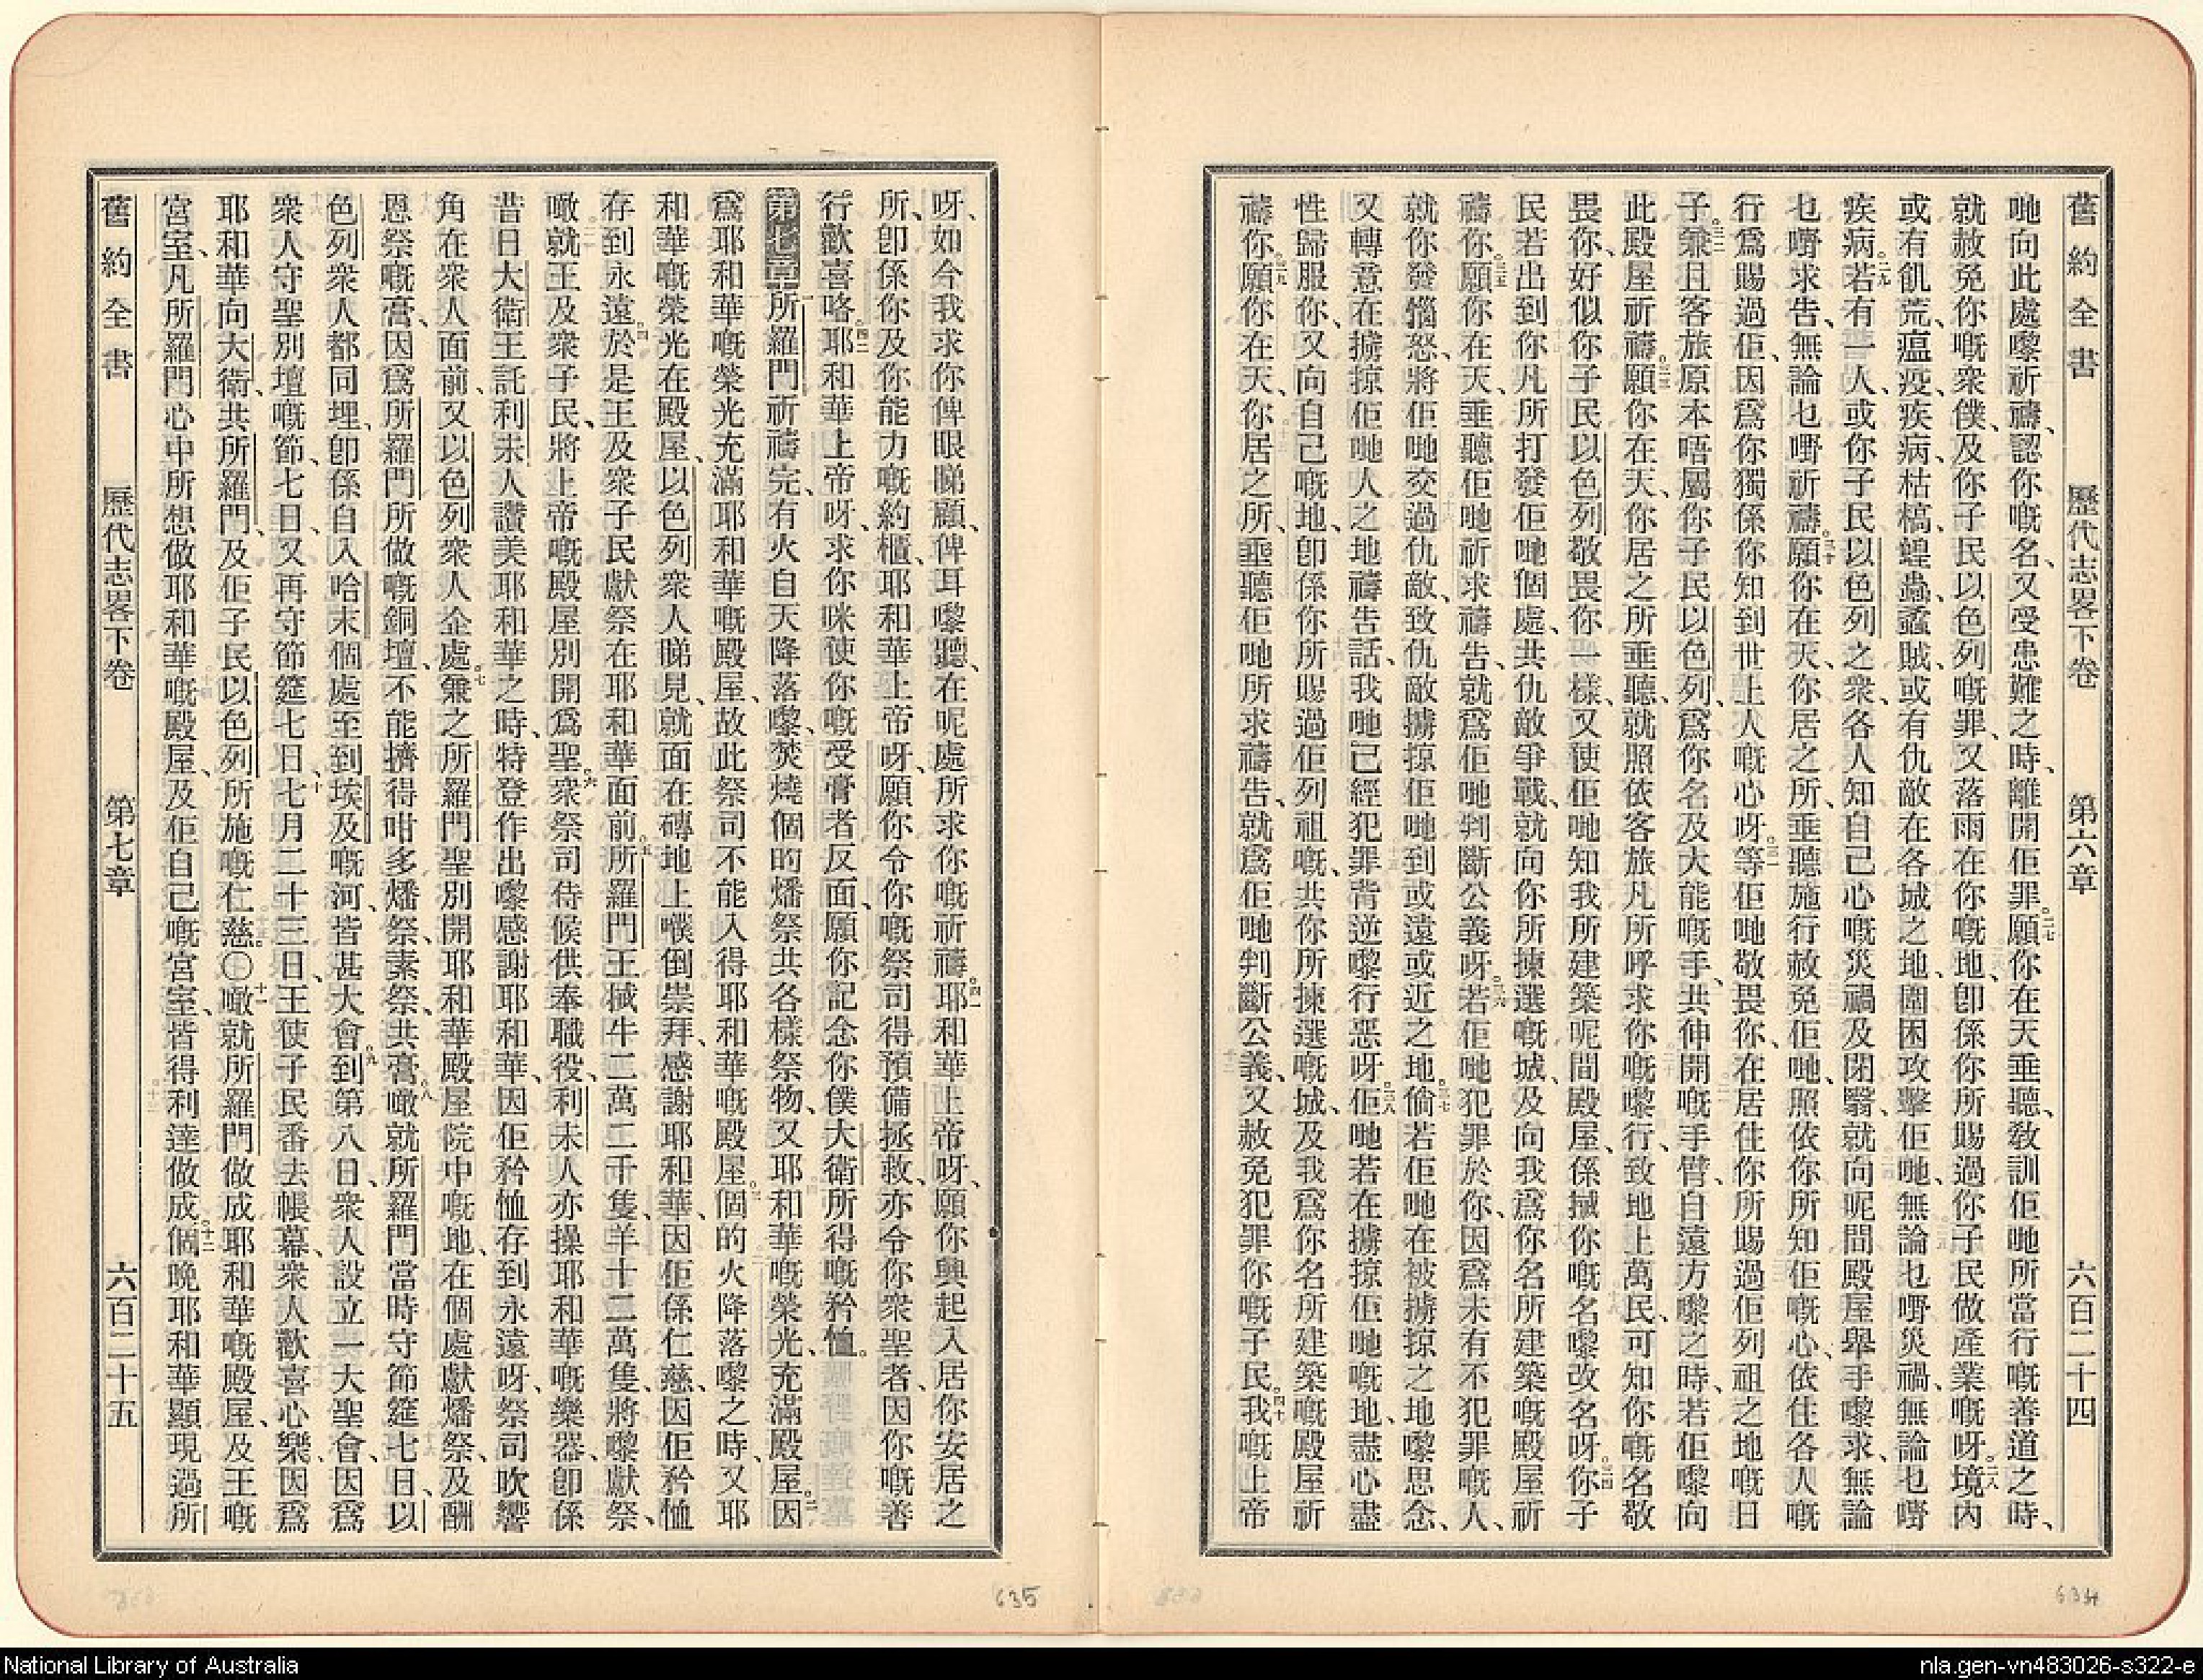 舊約全書 歷代志畧下卷 第六章 六百二十四
哋向此處嚟祈禱、認你嘅名、又受患難之時、離開佢罪、二七願你在天垂聽、敎訓佢哋所當行嘅善道之時、
就赦免你嘅衆僕、及你子民以色列嘅罪、又落雨在你嘅地、卽係你所賜過你子民做產業嘅呀。二八境內
或有飢荒、瘟疫、疾病、枯槁、蝗蟲、蠶賊、或有仇敵在各城之地、圍困攻擊佢哋、無論乜嘢災禍、無論乜嘢
疾病。二九若有一人、或你子民以色列之衆、各人知自己心嘅災禍、及閉翳、就向呢間殿屋舉手嚟求、無論
乜嘢求告、無論乜嘢祈禱。三十願你在天、你居之所、垂聽施行赦免佢哋、照依你所知佢嘅心、依住各人嘅
行爲賜過佢、因爲你獨係你知到世上人嘅心呀。三一等佢哋敬畏你、在居住你所賜過佢列祖之地嘅日
子。三二兼且客旅原本唔屬你子民以色列、爲你名及大能嘅手、共伸開嘅手臂、自遠方嚟之時、若佢嚟向
此殿屋祈禱。三三願你在天、你居之所垂聽、就照依客旅凡所呼求你嘅嚟行、致地上萬民、可知你嘅名敬
畏你、好似你子民以色列敬畏你一樣、又使佢哋知我所建築呢間殿屋、係搣你嘅名嚟改名呀。三四你子
民若出到你凡所打發佢哋個處、共仇敵爭戰、就向你所揀選嘅城、及向我爲你名所建築嘅殿屋祈
禱你。三五願你在天、垂聽佢哋祈求禱告、就爲佢哋判斷公義呀。三六若佢哋犯罪於你、因爲未有不犯罪嘅人、
就你發惱怒、將佢哋交過仇敵、致仇敵擄掠佢哋到或遠或近之地。三七倘若佢哋在被擄掠之地嚟思念、
又轉意在擄掠佢哋人之地禱告話、我哋已經犯罪背逆嚟行惡呀。三八佢哋若在擄掠佢哋嘅地、盡心盡
性歸服你、又向自己嘅地、卽係你所賜過佢列祖嘅、共你所揀選嘅城、及我爲你名所建築嘅殿屋祈
禱你。三九願你在天、你居之所、垂聽佢哋所求禱告、就爲佢哋判斷公義、又赦免犯罪你嘅子民。四十我嘅上帝
呀、如今我求你俾眼睇顧、俾耳嚟聽、在呢處所求你嘅祈禱。四一耶和華上帝呀、願你興起入居你安居之
所、卽係你及你能力嘅約櫃、耶和華上帝呀、願你令你嘅祭司得預備拯救、亦令你衆聖者、因你嘅善
行歡喜咯。四二耶和華上帝呀、求你咪使你嘅受膏者反面、願你記念你僕大衛所得嘅矜恤。
第七章 一所羅門祈禱完、有火自天降落嚟、焚燒個的燔祭共各樣祭物、又耶和華嘅榮光、充滿殿屋。二因
爲耶和華嘅榮光充滿耶和華嘅殿屋、故此祭司不能入得耶和華嘅殿屋。三個的火降落嚟之時、又耶
和華嘅榮光在殿屋、以色列衆人睇見、就面在磚地上噗倒崇拜、感謝耶和華、因佢係仁慈、因佢矜恤
存到永遠。四於是王及衆子民獻祭在耶和華面前。五所羅門王搣牛二萬二千隻、羊十二萬隻、將嚟獻祭、
噉就王及衆子民、將上帝嘅殿屋別開爲聖。六衆祭司侍候供奉職役、利未人亦操耶和華嘅樂器、卽係
昔日大衛王託利未人讚美耶和華之時、特登作出嚟感謝耶和華、因佢矜恤存到永遠呀、祭司吹響
角在衆人面前、又以色列衆人企處。七兼之所羅門聖別開耶和華殿屋院中嘅地、在個處獻燔祭、及酬
恩祭嘅膏、因爲所羅門所做嘅銅壇、不能擠得咁多燔祭、素祭、共膏。八噉就所羅門當時守節筵七日、以
色列衆人都同埋、卽係自入哈末個處至到埃及嘅河、皆甚大會。九到第八日、衆人設立一大聖會、因爲
衆人守聖別壇嘅節七日、又再守節筵七日。十七月二十三日、王使子民番去帳幕、衆人歡喜心樂、因爲
耶和華向大衛、共所羅門、及佢子民以色列所施嘅仁慈。〇十一噉就所羅門做成耶和華嘅殿屋、及王嘅
宮室、凡所羅門心中所想做耶和華嘅殿屋、及佢自己嘅宮室、皆得利達做成。十二個晚耶和華顯現過所
舊約全書 歷代志畧下卷 第七章 六百二十五
635
634
National Library of Australia
nla.gen-vn483026-s322-e